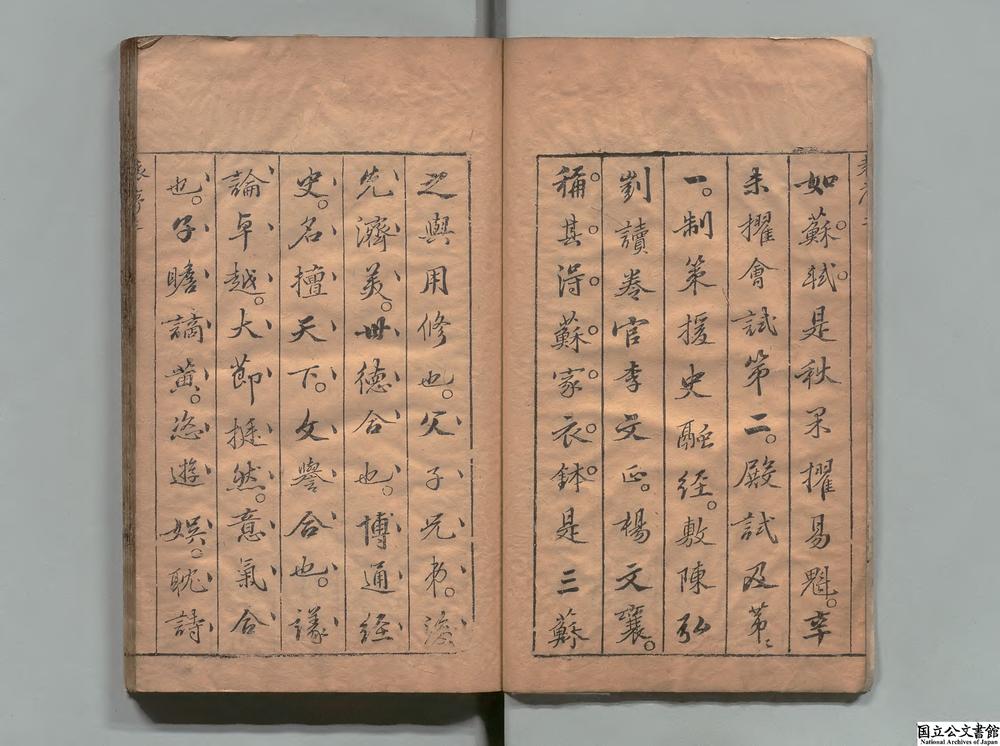 如蘇軾。是秋果擢易魁。辛
未擢會試第二。殿試及第
一。制策援史融經。敷陳弘
剴讀卷官李文正。楊文襄。
稱其得蘇家衣鉢。是三蘇
之與用修也。父子兄弟。後
先濟美。世德合也。博通經
史。名擅天下。文譽合也。議
論卓越。大節挺然。意氣合
也。子瞻謫黃。恣遊娛。耽詩
国立公文書館
National Archives of Japan